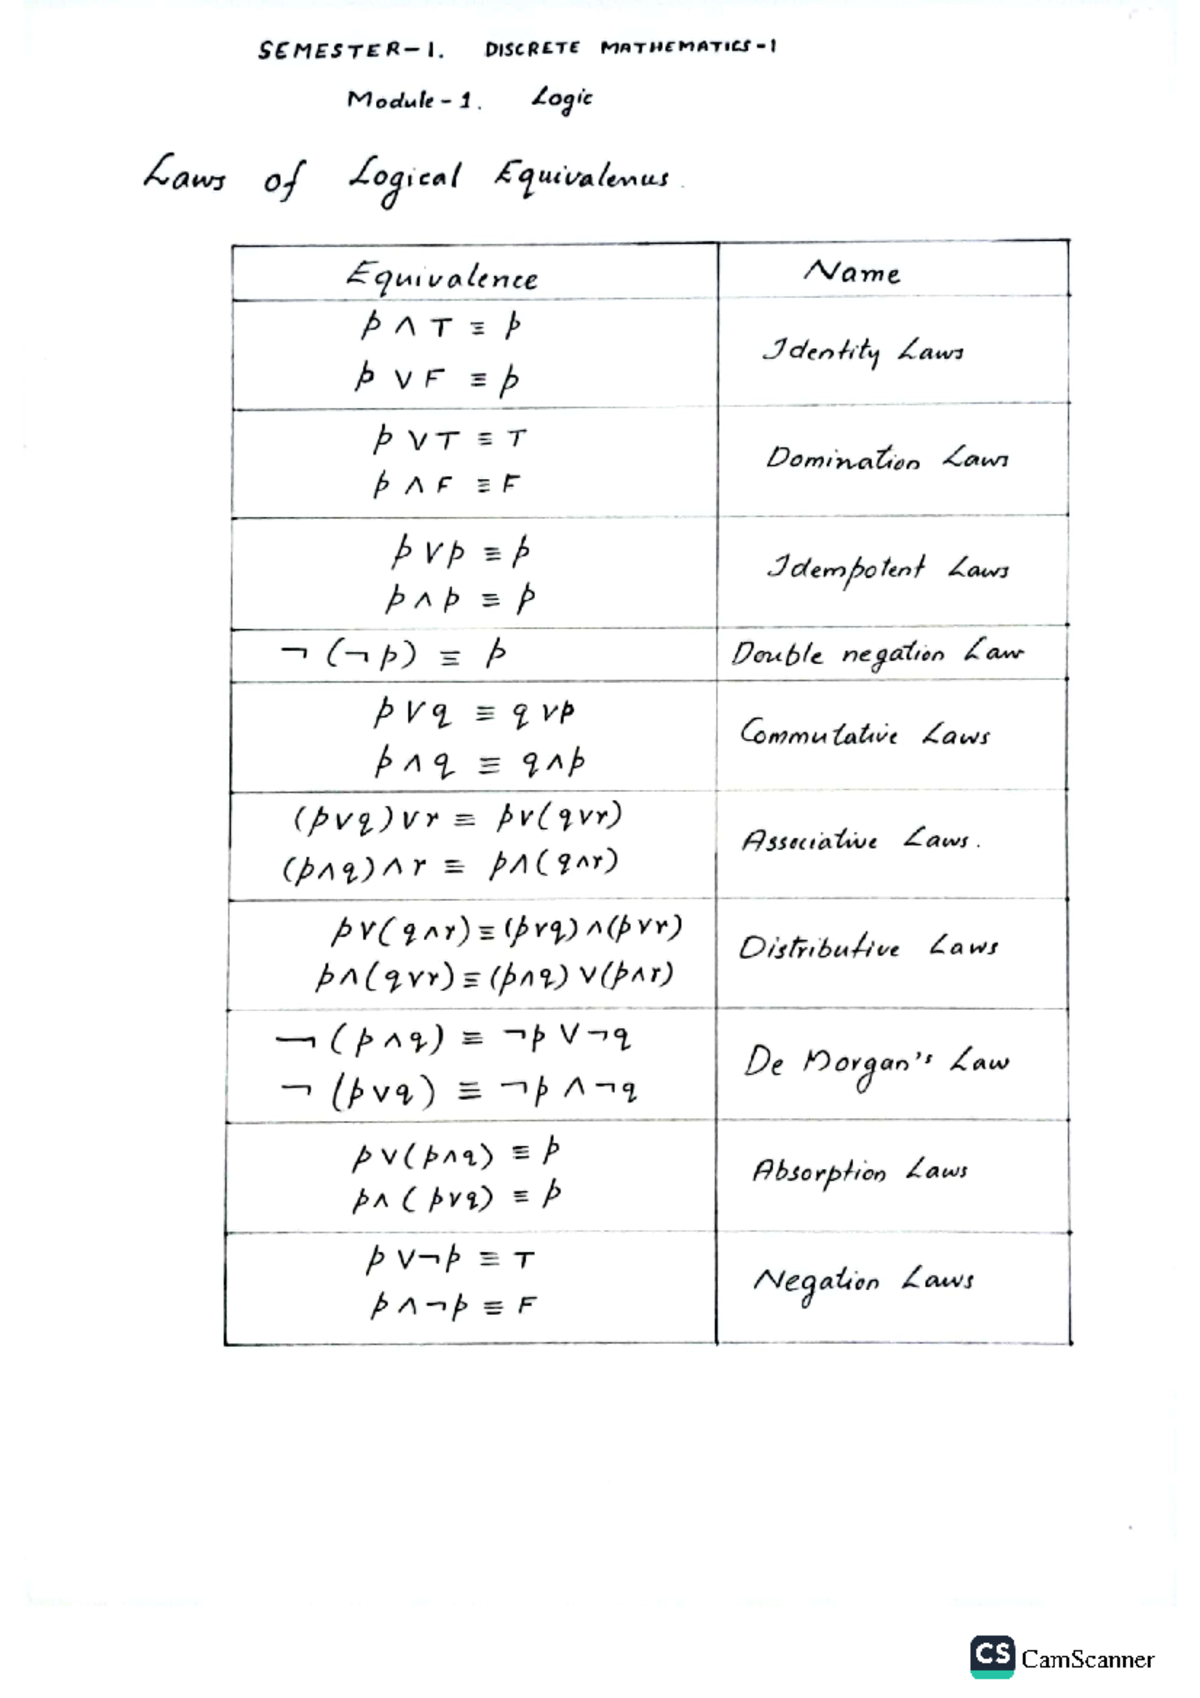 SEMESTER-1. DISCRETE MATHEMATICS-1
Module-1. Logic
Laws of Logical Equivalenus.
Equivalence Name
p ∧ T ≡ p
p ∨ F ≡ p
Identity Laws
p ∨ T ≡ T
p ∧ F ≡ F
Domination Laws
p ∨ p ≡ p
p ∧ p ≡ p
Idempotent Laws
¬(¬p) ≡ p Double negation Law
p ∨ q ≡ q ∨ p
p ∧ q ≡ q ∧ p
Commutative Laws
(p∨q)∨r ≡ p∨(q∨r)
(p∧q)∧r ≡ p∧(q∧r)
Associative Laws.
p∨(q∧r) ≡ (p∨q)∧(p∨r)
p∧(q∨r) ≡ (p∧q)∨(p∧r)
Distributive Laws
¬(p∧q) ≡ ¬p∨¬q
¬(p∨q) ≡ ¬p∧¬q
De Morgan's Law
p∨(p∧q) ≡ p
p∧(p∨q) ≡ p
Absorption Laws
p∨¬p ≡ T
p∧¬p ≡ F
Negation Laws
CS CamScanner